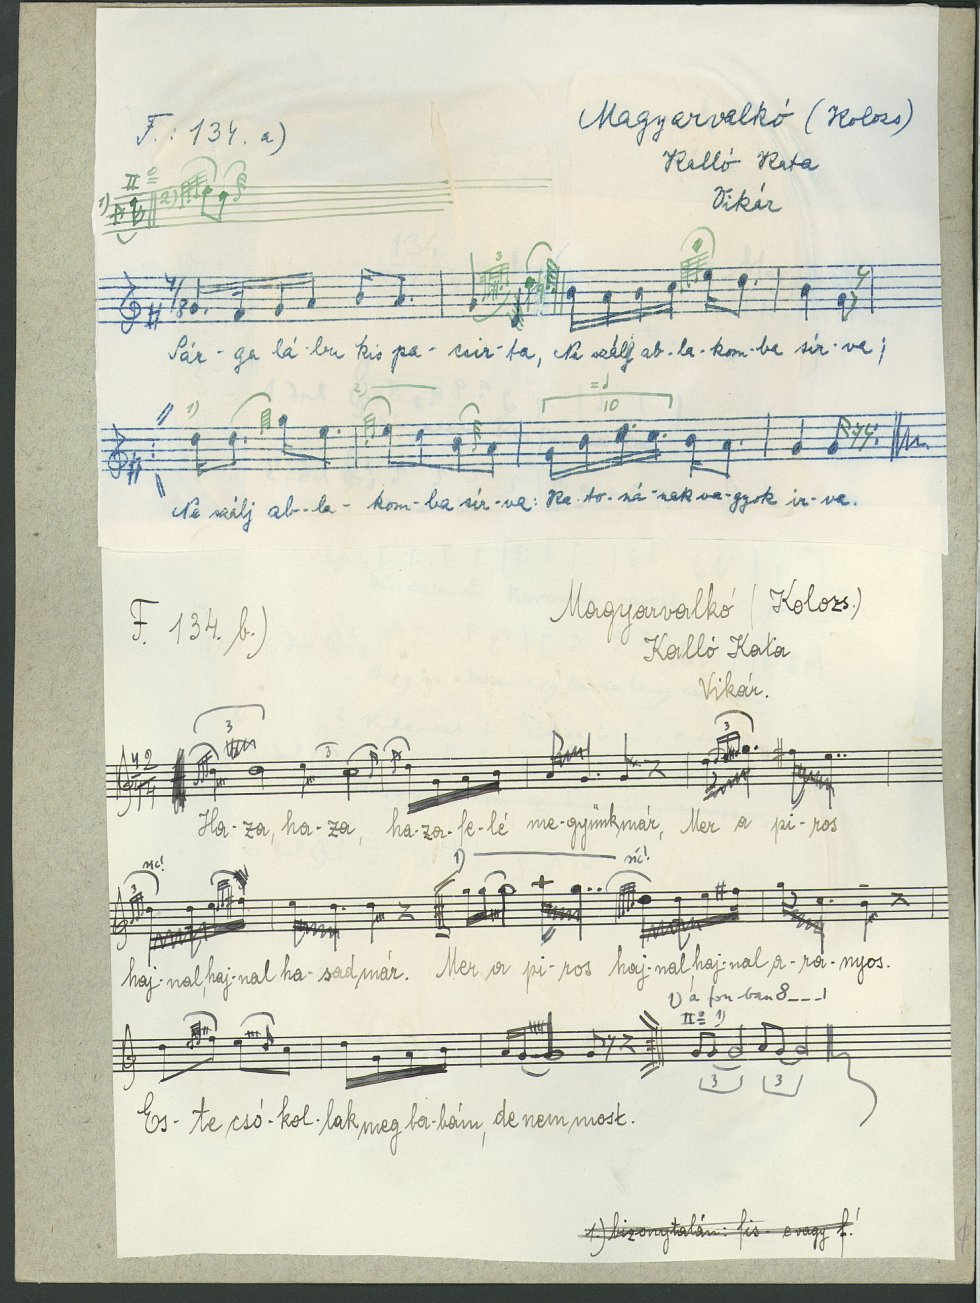 F.: 134. a)
Magyarvalkó (Kolozs)
Kalló Kata
Vikár
1) II 2)
3
4/8
Sár-ga lá-bu kis pa-csir-ta, Ne szálj ab-la-kom-ba sír-va;
1) 2) 10
Ne szálj ab-la-kom-ba sír-va: Ka-to-ná-nak va-gyok ir-va.
F. 134. b.)
Magyarvalkó (Kolozs.)
Kalló Kata
Vikár.
3 3 3
4 2
4 4
Ha-za, ha-za, ha-za-fe-lé me-gyünk már, Mer a pi-ros
3 sic! 1) sic!
haj-nal, haj-nal ha-sad már. Mer a pi-ros haj-nal, haj-nal a-ra-nyos.
1) á fon-ban 8---1
II 1)
3 3
Es-te csó-kol-lak meg ba-bám, de nem most.
1.) bizonytalán: fis- e vagy f.!